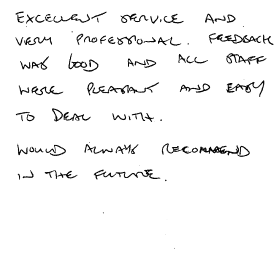 EXCELLENT SERVICE AND
VERY PROFESSIONAL. FEEDBACK
WAS GOOD AND ALL STAFF
WERE PLEASANT AND EASY
TO DEAL WITH.
WOULD ALWAYS RECOMMEND
IN THE FUTURE.